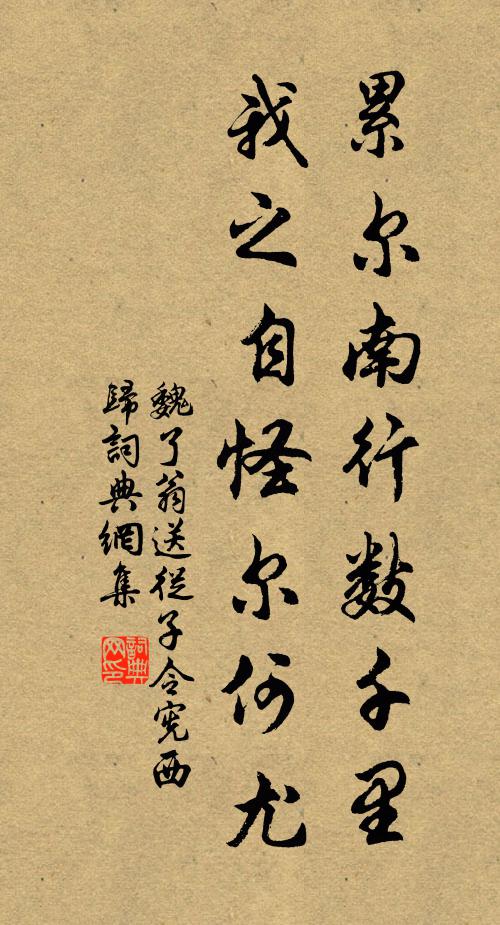 累尔南行数千里
我之自怪尔何尤
魏了翁送從子令宪西
歸詞典網集
詞典网印